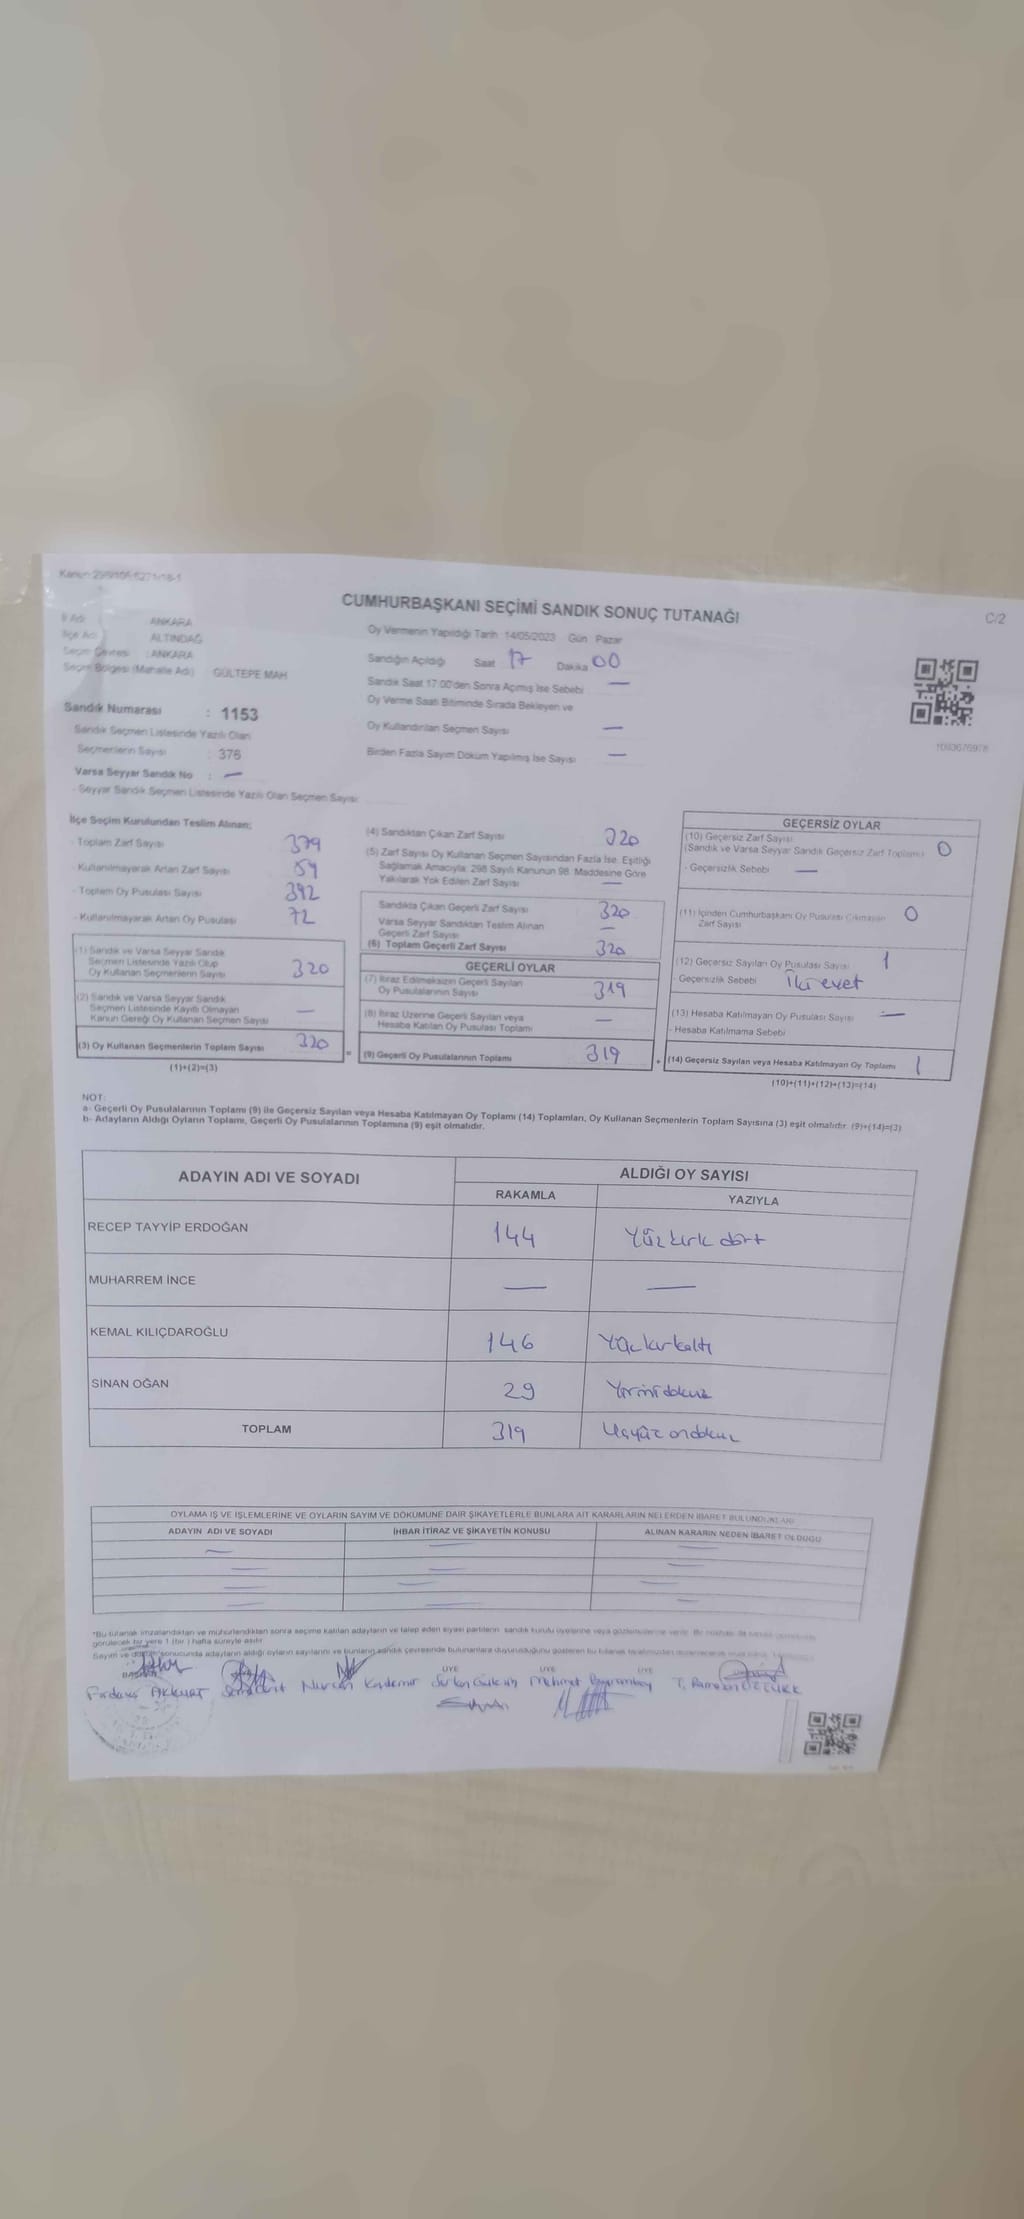 Kanun 298/105-6271/18-1
CUMHURBAŞKANI SEÇİMİ SANDIK SONUÇ TUTANAĞI
C/2
İl Adı : ANKARA
İlçe Adı : ALTINDAĞ
Seçim Çevresi : ANKARA
Seçim Bölgesi (Mahalle Adı) GÜLTEPE MAH
Sandık Numarası : 1153
Sandık Seçmen Listesinde Yazılı Olan
Seçmenlerin Sayısı : 376
Varsa Seyyar Sandık No : —
- Seyyar Sandık Seçmen Listesinde Yazılı Olan Seçmen Sayısı
Oy Vermenin Yapıldığı Tarih 14/05/2023 Gün Pazar
Sandığın Açıldığı Saat 17 Dakika 00
Sandık Saat 17:00'den Sonra Açılmış İse Sebebi —
Oy Verme Saati Bitiminde Sırada Bekleyen ve
Oy Kullandırılan Seçmen Sayısı —
Birden Fazla Sayım Döküm Yapılmış İse Sayısı —
1093676978
İlçe Seçim Kurulundan Teslim Alınan;
- Toplam Zarf Sayısı 379
- Kullanılmayarak Artan Zarf Sayısı 59
- Toplam Oy Pusulası Sayısı 392
- Kullanılmayarak Artan Oy Pusulası 72
(1) Sandık ve Varsa Seyyar Sandık
Seçmen Listesinde Yazılı Olup
Oy Kullanan Seçmenlerin Sayısı 320
(2) Sandık ve Varsa Seyyar Sandık
Seçmen Listesinde Kayıtlı Olmayan
Kanun Gereği Oy Kullanan Seçmen Sayısı —
(3) Oy Kullanan Seçmenlerin Toplam Sayısı 320
(1)+(2)=(3)
(4) Sandıktan Çıkan Zarf Sayısı 320
(5) Zarf Sayısı Oy Kullanan Seçmen Sayısından Fazla İse, Eşitliği
Sağlamak Amacıyla, 298 Sayılı Kanunun 98. Maddesine Göre
Yakılarak Yok Edilen Zarf Sayısı —
Sandıkta Çıkan Geçerli Zarf Sayısı 320
Varsa Seyyar Sandıktan Teslim Alınan
Geçerli Zarf Sayısı —
(6) Toplam Geçerli Zarf Sayısı 320
GEÇERLİ OYLAR
(7) İtiraz Edilmeksizin Geçerli Sayılan
Oy Pusulalarının Sayısı 319
(8) İtiraz Üzerine Geçerli Sayılan veya
Hesaba Katılan Oy Pusulası Toplamı —
= (9) Geçerli Oy Pusulalarının Toplamı 319
GEÇERSİZ OYLAR
(10) Geçersiz Zarf Sayısı
(Sandık ve Varsa Seyyar Sandık Geçersiz Zarf Toplamı) 0
- Geçersizlik Sebebi —
(11) İçinden Cumhurbaşkanı Oy Pusulası Çıkmayan
Zarf Sayısı 0
(12) Geçersiz Sayılan Oy Pusulası Sayısı 1
Geçersizlik Sebebi İki evet
(13) Hesaba Katılmayan Oy Pusulası Sayısı —
- Hesaba Katılmama Sebebi
+ (14) Geçersiz Sayılan veya Hesaba Katılmayan Oy Toplamı 1
(10)+(11)+(12)+(13)=(14)
NOT:
a- Geçerli Oy Pusulalarının Toplamı (9) ile Geçersiz Sayılan veya Hesaba Katılmayan Oy Toplamı (14) Toplamları, Oy Kullanan Seçmenlerin Toplam Sayısına (3) eşit olmalıdır. (9)+(14)=(3)
b- Adayların Aldığı Oyların Toplamı, Geçerli Oy Pusulalarının Toplamına (9) eşit olmalıdır.
ADAYIN ADI VE SOYADI
ALDIĞI OY SAYISI
RAKAMLA YAZIYLA
RECEP TAYYİP ERDOĞAN 144 Yüz kırk dört
MUHARREM İNCE — —
KEMAL KILIÇDAROĞLU 146 Yüz kırk altı
SİNAN OĞAN 29 Yirmi dokuz
TOPLAM 319 Üçyüz ondokuz
OYLAMA İŞ VE İŞLEMLERİNE VE OYLARIN SAYIM VE DÖKÜMÜNE DAİR ŞİKAYETLERLE BUNLARA AİT KARARLARIN NELERDEN İBARET BULUNDUKLARI
ADAYIN ADI VE SOYADI İHBAR İTİRAZ VE ŞİKAYETİN KONUSU ALINAN KARARIN NEDEN İBARET OLDUĞU
— — —
— — —
— — —
— — —
*Bu tutanak imzalandıktan ve mühürlendikten sonra seçime katılan adayların ve talep eden siyasi partilerin sandık kurulu üyelerine veya gözlemcilerine verilir.
görülecek bir yere 1 (bir) hafta süreyle asılır.
Sayım ve döküm sonucunda adayların aldığı oyların sayılarını ve bunların sandık çevresinde bulunanlara duyurulduğunu gösteren bu tutanak
BAŞKAN ÜYE ÜYE ÜYE
Firdevs AKKURT Nurcan Kademir Mehmet T. Ramazan ÖZTÜRK